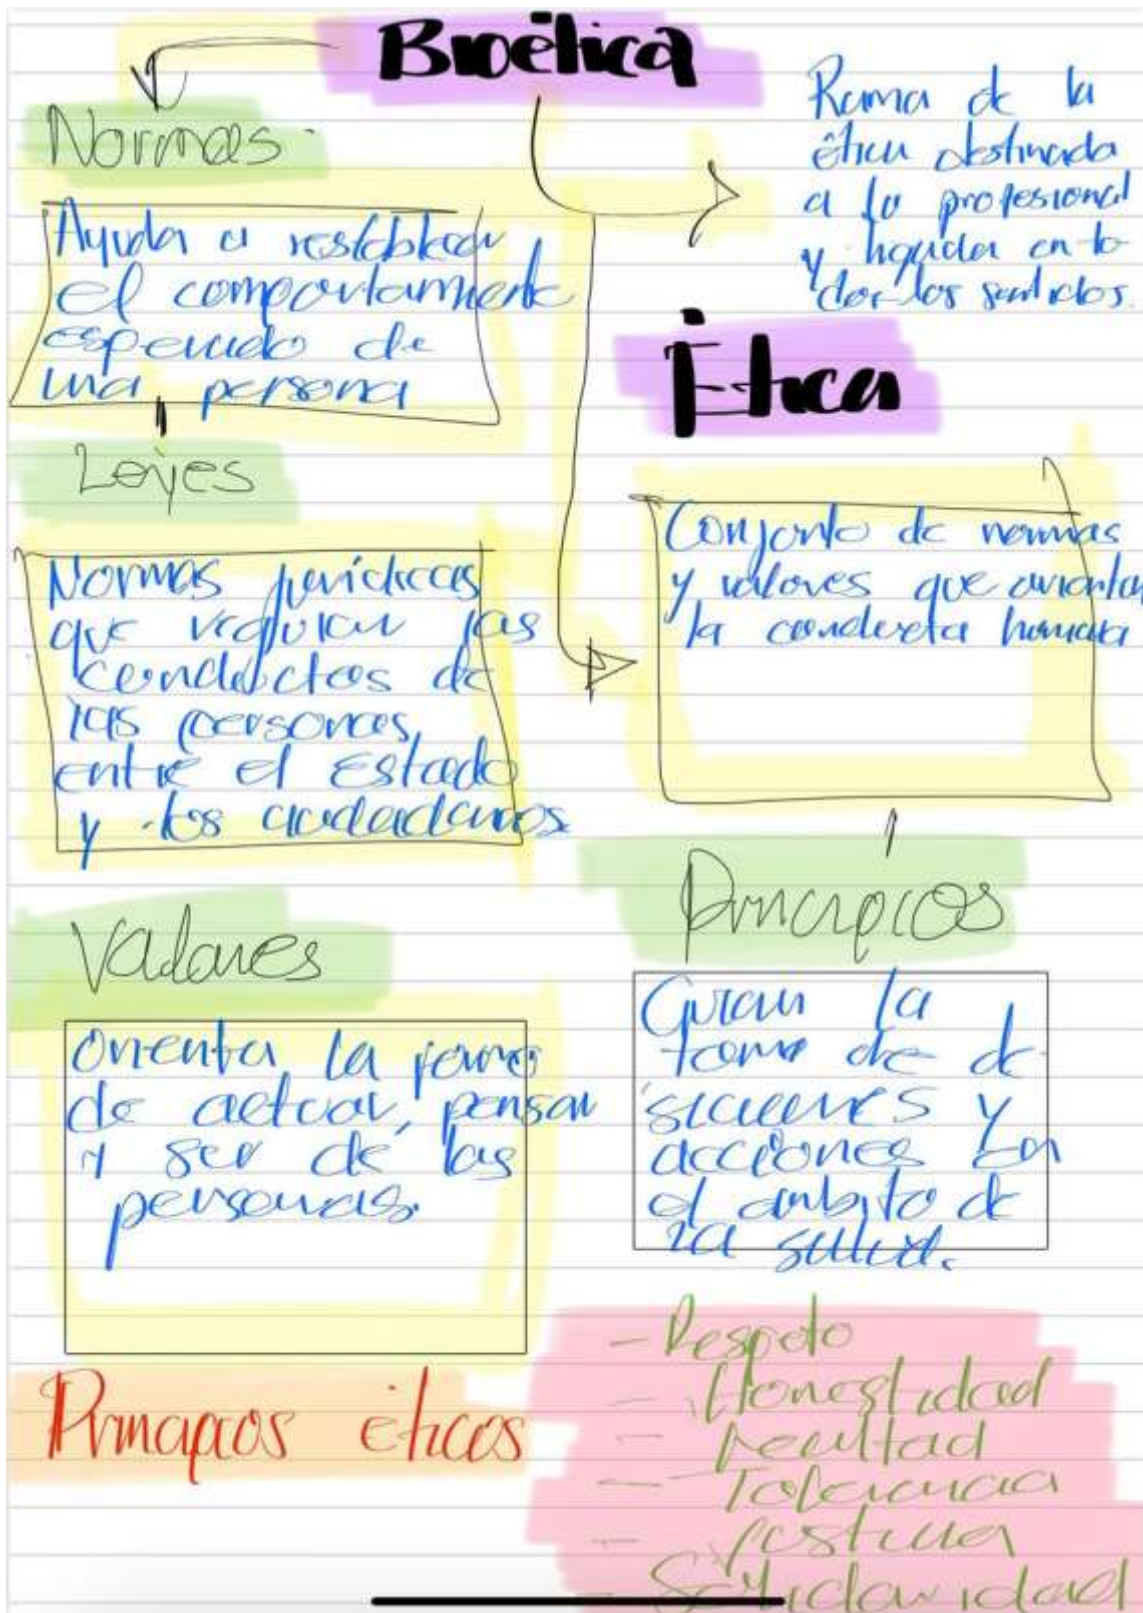 Bioética
Rama de la
ética destinada
a lo profesional
y ligada en to
dos los sentidos.
Normas
Ayuda a restablecer
el comportamiento
esperado de
una persona
Leyes
Normas jurídicas
que regulan las
conductas de
las personas
entre el Estado
y los ciudadanos
Ética
Conjunto de normas
y valores que orientan
la conducta humana
Valores
Orienta la forma
de actuar, pensar
y ser de las
personas.
Principios
Guian la
toma de de
siciones y
acciones en
el ambito de
la salud.
Principios éticos
- Respeto
- Honestidad
- Lealtad
- Tolerancia
- Justicia
- Solidaridad